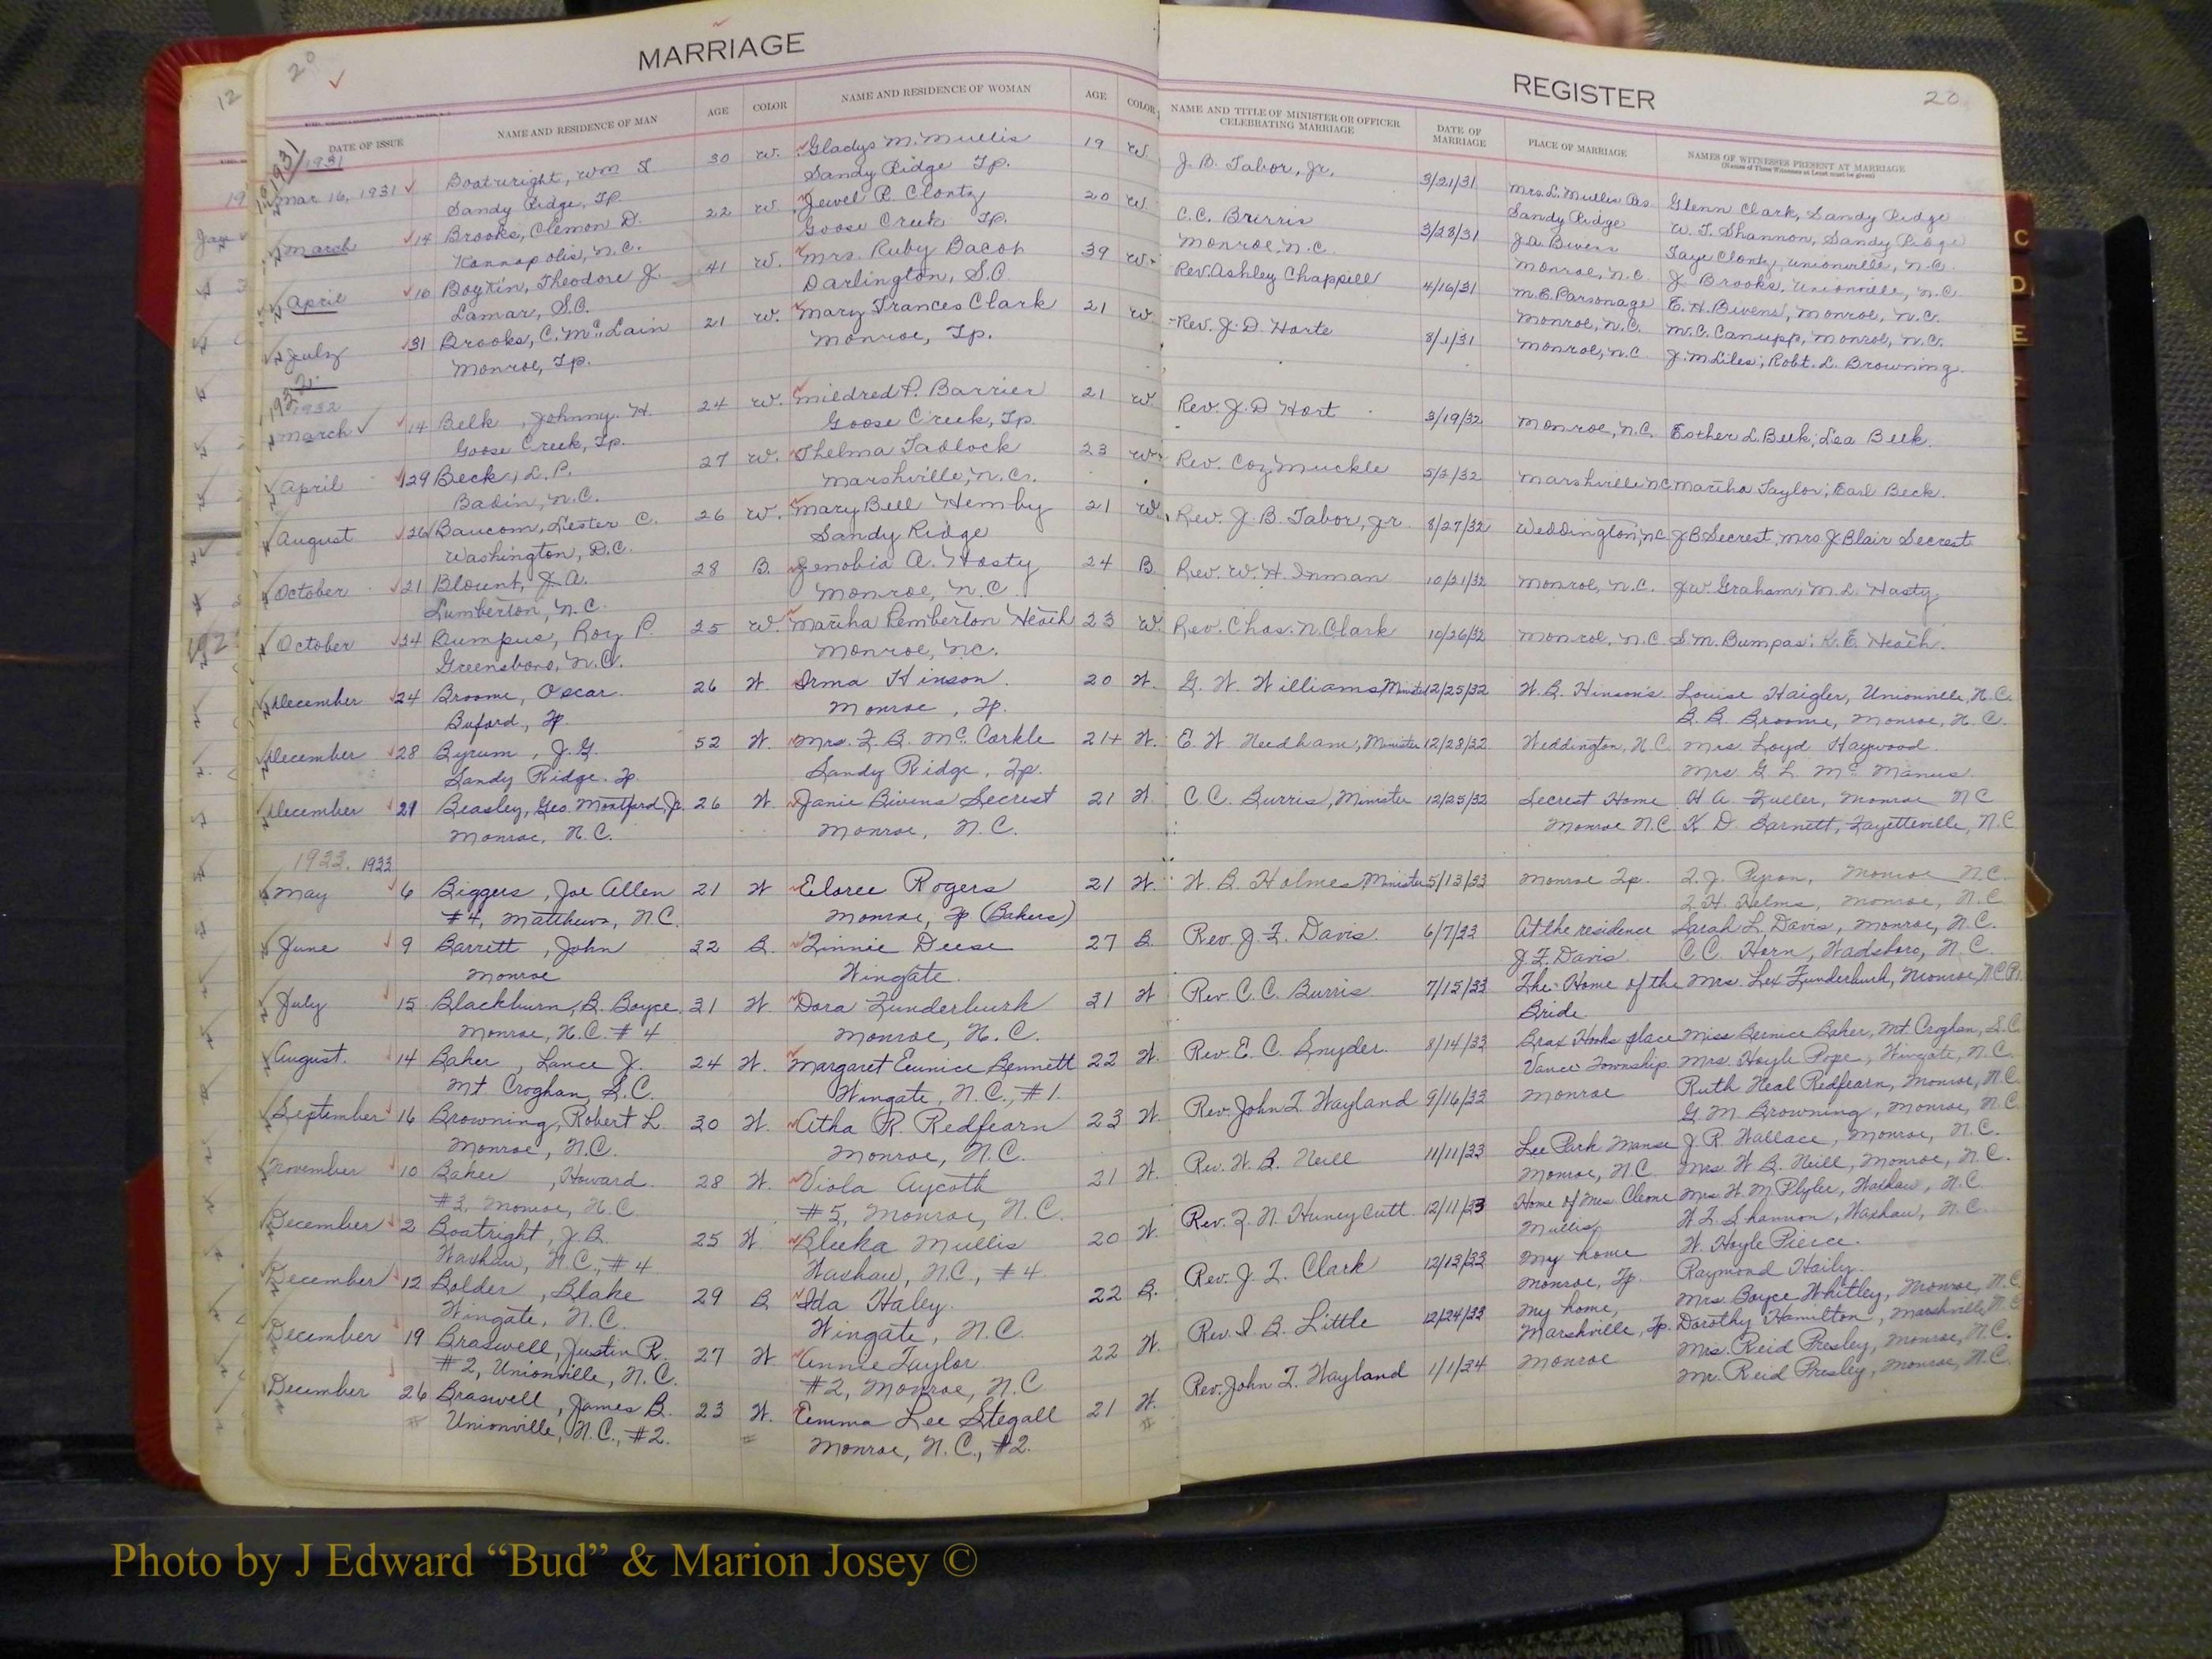 MARRIAGE
20
12
DATE OF ISSUE
NAME AND RESIDENCE OF MAN
AGE
COLOR
NAME AND RESIDENCE OF WOMAN
AGE
COLOR
1931
1931
Mar 16, 1931 Boatwright, Wm T 30 W. Gladys M. Mullis 19 W.
Sandy Ridge, Tp Sandy Ridge Tp.
March 14 Brooks, Clemon D. 22 W. Jewel R. Clontz 20 W.
Kannapolis, N.C. Goose Creek Tp.
April 10 Boykin, Theodore J. 41 W. Mrs. Ruby Bacot 39 W.
Lamar, S.C. Darlington, S.C.
July 31 Brooks, C. McLain 21 W. Mary Frances Clark 21 W.
Monroe, Tp. Monroe, Tp.
1932
1932
March 14 Belk, Johnny H. 24 W. Mildred P. Barrier 21 W.
Goose Creek, Tp. Goose Creek, Tp.
April 29 Beck, L. P. 27 W. Thelma Tadlock 23 W.
Badin, N.C. Marshville, N.C.
August 26 Baucom, Lester C. 26 W. Mary Bell Hemby 21 W.
Washington, D.C. Sandy Ridge
October 21 Blount, J. A. 28 B. Zenobia A. Hasty 24 B
Lumberton, N.C. Monroe, N.C.
October 24 Bumpus, Roy P. 25 W. Martha Pemberton Heath 23 W.
Greensboro, N.C. Monroe, N.C.
December 24 Broome, Oscar 26 W. Irma Hinson 20 W.
Buford, Tp Monroe, Tp.
December 28 Byrum, J. G. 52 W. Mrs. F. B. McCorkle 21+ W.
Sandy Ridge. Tp Sandy Ridge, Tp.
December 21 Beasley, Geo. Montford, Jr. 26 W. Janie Bivens Secrest 21 W.
Monroe, N.C. Monroe, N.C.
1933. 1933
May 6 Biggers, Joe Allen 21 W Eloree Rogers 21 W.
#4, Matthews, N.C. Monroe, Tp (Bakers)
June 9 Barrett, John 32 B. Linnie Deese 27 B.
Monroe Wingate.
July 15 Blackburn, B. Boyce 31 W. Dora Funderburk 31 W
Monroe, N.C. #4 Monroe, N.C.
August 14 Baker, Lance J. 24 W. Margaret Eunice Bennett 22 W.
Mt Croghan, S.C. Wingate, N.C., #1.
September 16 Browning, Robert L. 30 W. Atha R. Redfearn 23 W.
Monroe, N.C. Monroe, N.C.
November 10 Baker, Howard 28 W. Viola Aycoth 21 W.
#3, Monroe, N.C. #5, Monroe, N.C.
December 2 Boatright, J. B. 25 W. Bleeka Mullis 20 W.
Waxhaw, N.C., #4 Waxhaw, N.C., #4
December 12 Bolder, Blake 29 B Ida Haley 22 B.
Wingate, N.C. Wingate, N.C.
December 19 Braswell, Justin R. 27 W. Annie Taylor 22 W.
#2, Unionville, N.C. #2, Monroe, N.C
December 26 Braswell, James B. 23 W. Emma Lee Stegall 21 W.
Unionville, N.C., #2. Monroe, N.C., #2.
REGISTER
20
NAME AND TITLE OF MINISTER OR OFFICER CELEBRATING MARRIAGE
DATE OF MARRIAGE
PLACE OF MARRIAGE
NAMES OF WITNESSES PRESENT AT MARRIAGE
(Names of Three Witnesses at Least must be given)
J. B. Tabor, Jr. 3/21/31 Mrs. L. Mullis Res Glenn Clark, Sandy Ridge
Sandy Ridge W. T. Shannon, Sandy Ridge
C.C. Burris 3/28/31 J. A. Bivens Faye Clontz, Unionville, N.C.
Monroe, N.C. Monroe, N.C. J. Brooks, Unionville, N.C.
Rev. Ashley Chappell 4/16/31 M.E. Parsonage E. H. Bivens, Monroe, N.C.
Monroe, N.C. M. C. Canupp, Monroe, N.C.
Rev. J. D. Harte 8/1/31 Monroe, N.C. J. M Liles; Robt. L. Browning
Rev. J. D Hart 3/19/32 Monroe, N.C. Esther L. Belk; Lea Belk.
Rev. Coy Muckle 5/2/32 Marshville N.C. Martha Taylor; Earl Beck.
Rev. J. B. Tabor, Jr. 8/27/32 Weddington, N.C. J B Secrest, Mrs J Blair Secrest
Rev. W. H. Inman 10/21/32 Monroe, N.C. J. W. Graham; M. L. Hasty
Rev. Chas. N. Clark 10/26/32 Monroe, N.C. S. M. Bumpas; K. E. Heath.
G. W. Williams, Minister 12/25/32 W. B. Hinson's Louise Haigler, Unionville, N.C.
B. B. Broome, Monroe, N.C.
E. W Needham, Minister 12/28/32 Weddington, N.C. Mrs. Loyd Haywood
Mrs G L McManus
C. C. Burris, Minister 12/25/32 Secrest Home H. A. Fuller, Monroe N C
Monroe N.C K. D. Barnett, Fayetteville, N.C
W. B. Holmes, Minister 5/13/33 Monroe Tp. T. J. Pyron, Monroe N.C.
T. H. Helms, Monroe, N.C
Rev. J. F. Davis. 6/7/33 At the residence Sarah L Davis, Monroe, N.C.
J. F. Davis C. C. Horn, Wadsboro, N.C.
Rev. C. C. Burris 7/15/33 The Home of the Mrs. Lex Funderburk, Monroe, N.C.
Bride
Rev. E. C. Snyder. 8/14/33 Brax Hooks place Miss Bernice Baker, Mt. Croghan, S.C.
Vance Township Mrs. Hoyle Pope, Wingate, N.C.
Rev. John F. Wayland 9/16/33 Monroe Ruth Neal Redfearn, Monroe, N.C
G M Browning, Monroe, N.C.
Rev. W. B. Neill 11/11/33 Lee Park Manse J. R. Wallace, Monroe, N.C.
Monroe, N.C. Mrs. W B. Neill, Monroe, N.C.
Rev. F. N. Huneycutt 12/11/33 Home of Mrs Cleone Mrs. W. M. Plyler, Waxhaw, N.C.
Mullis W. T. Shannon, Waxhaw, N.C.
Rev. J. T. Clark 12/13/33 My home W. Hoyle Pierce.
Monroe, Tp. Raymond Haily.
Rev. I. B. Little 12/24/33 My home, Mrs. Boyce Whitley, Monroe, N.C
Marshville, Tp. Dorothy Hamilton, Marshville, N.C
Rev. John F. Wayland 1/1/34 Monroe Mrs. Reid Presley, Monroe, N.C.
Mr. Reid Presley, Monroe, N.C.
C
D
E
Photo by J Edward “Bud” & Marion Josey ©